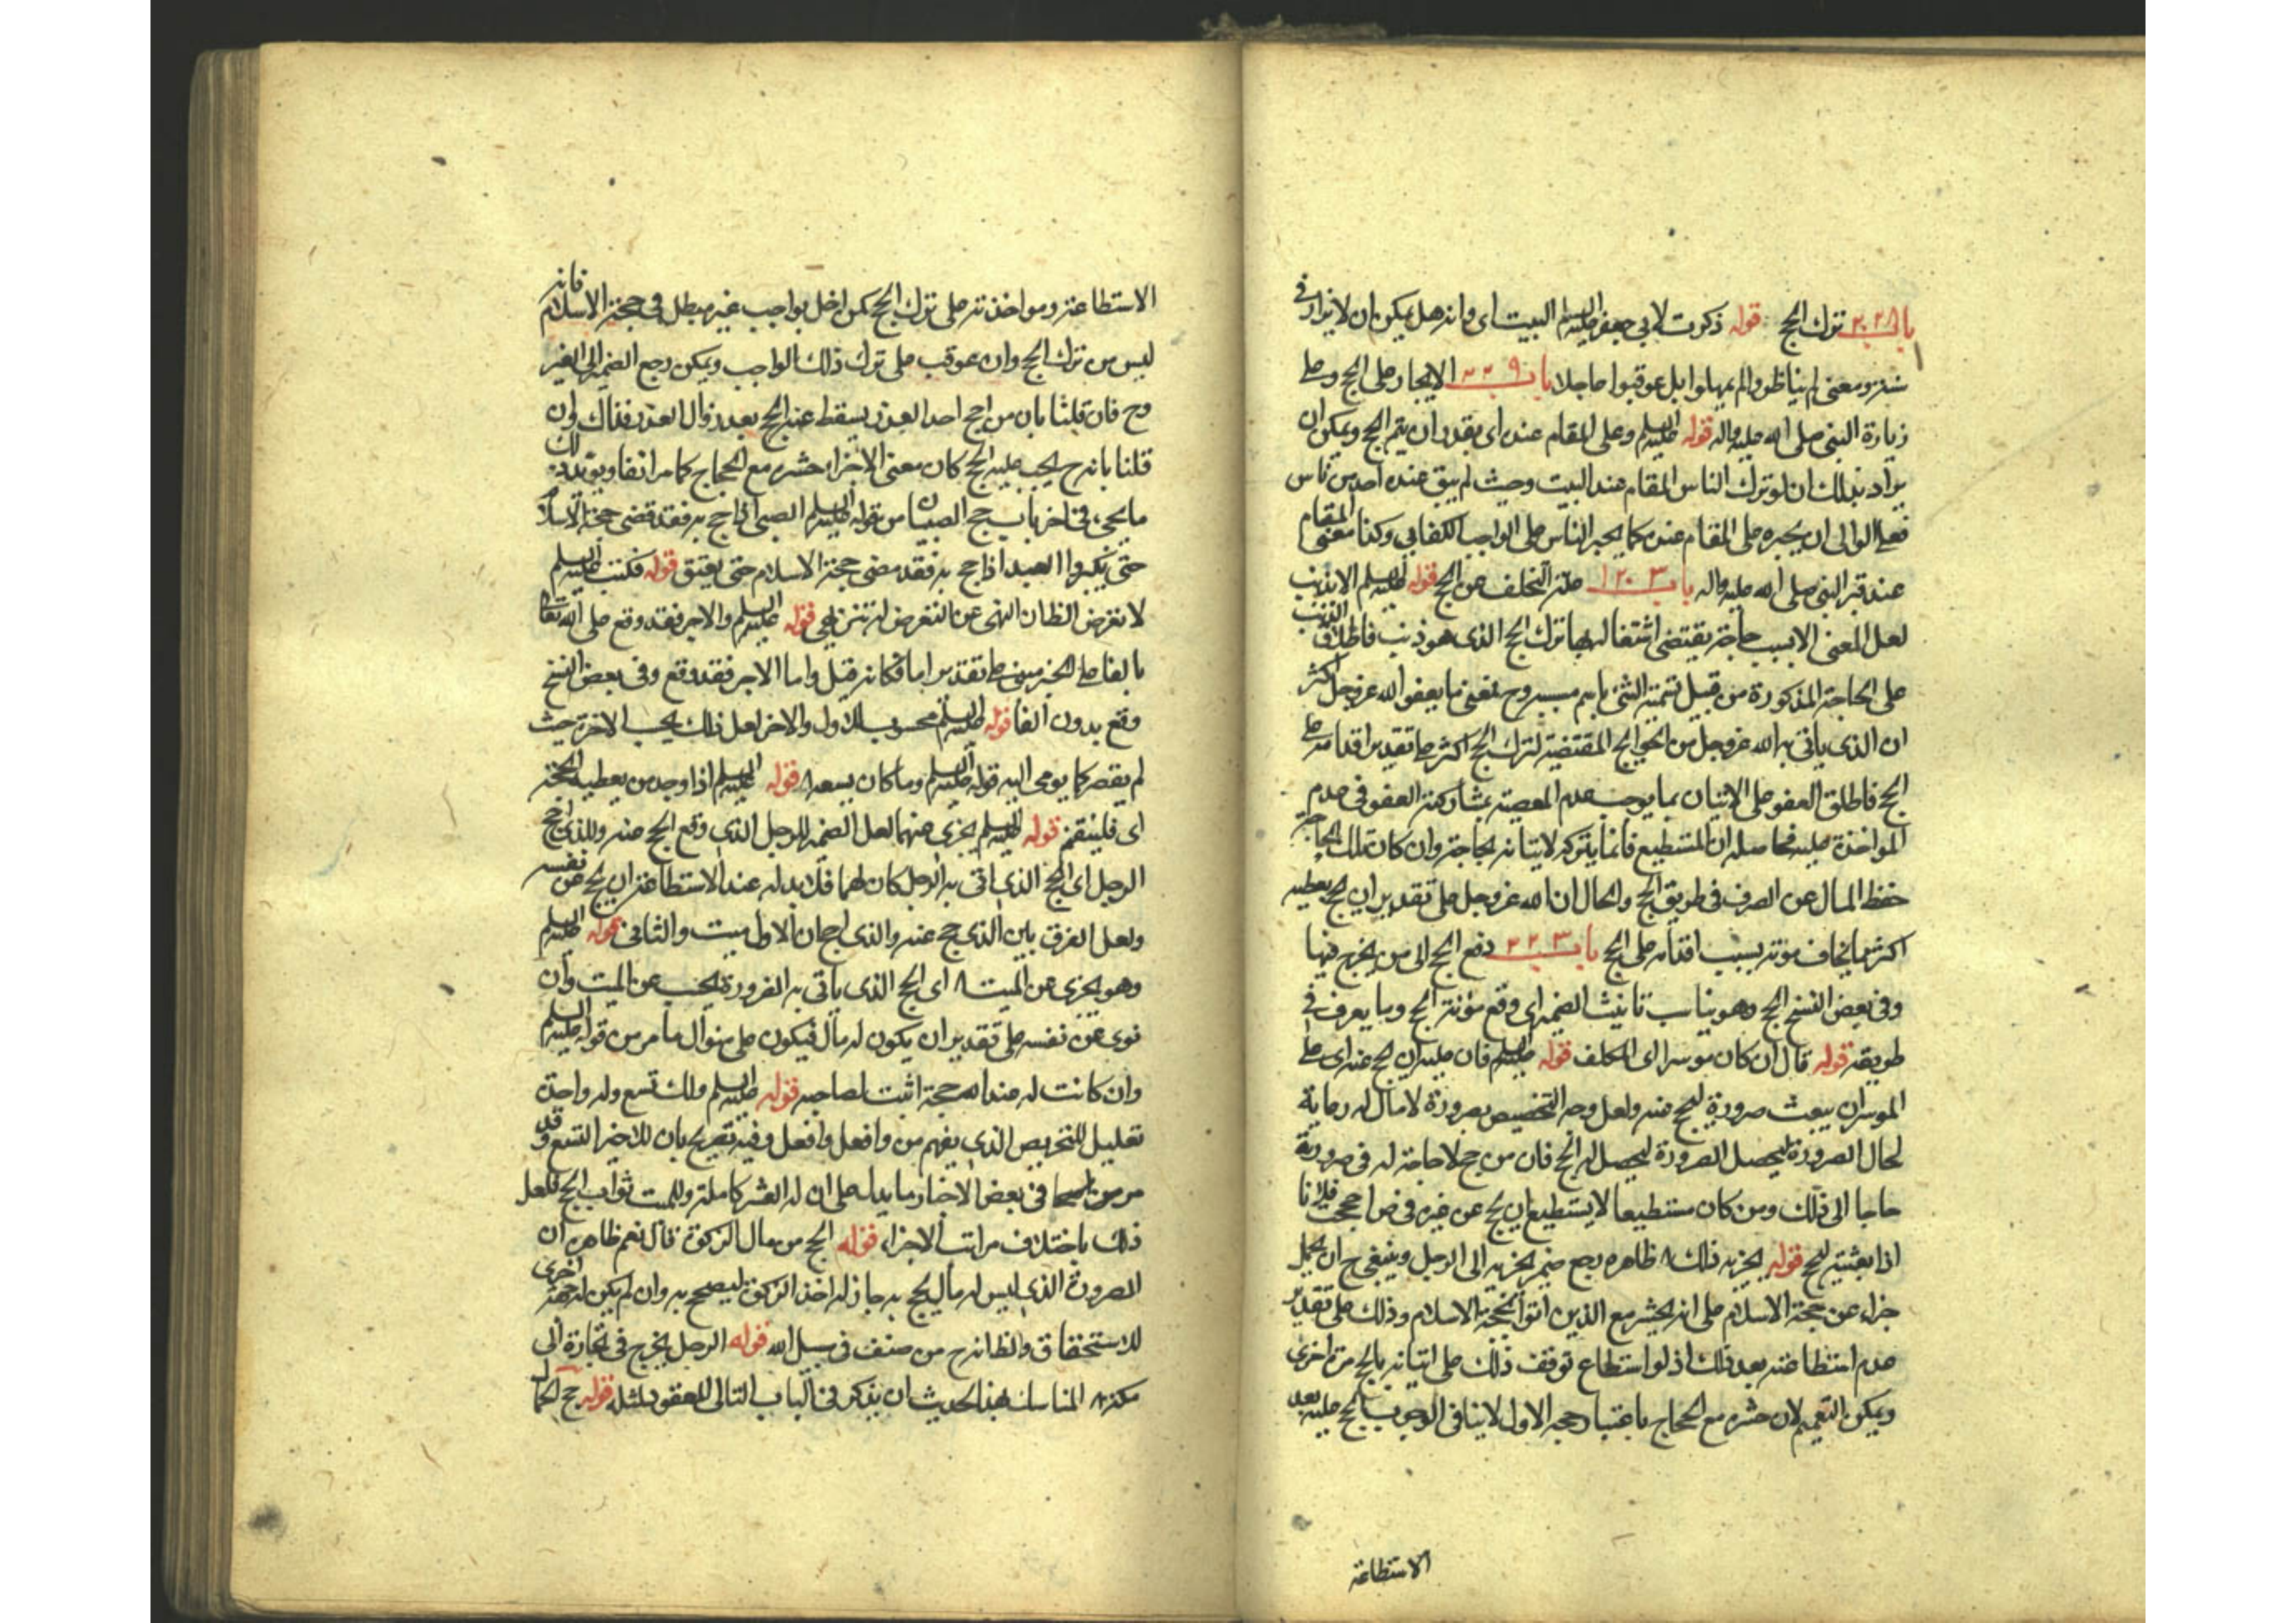 باب ٢٠٢٨ ترك الحج قوله ذكرت لابي جعفر عليه السلم البيت اى وانه هل يمكن ان لا يزار في
سنة ومعنى لم يناظروا لم يمهلوا بل عوقبوا عاجلا باب ٢٢٩ الاجبار على الحج وعلى
زيارة النبي صلى الله عليه واله قوله عليه السلم وعلى المقام عنده اى بقدر ان يتم الحج ويمكن ان
يراد بذلك ان لو ترك الناس المقام عند البيت وحيث لم يبق عنده احد من ناس
فعلى الوالى ان يجبره على المقام عنده كما يجبر الناس على الواجب الكفايي وكذا معنى المقام
عند قبر النبي صلى الله عليه واله باب علة التخلف عن الحج قوله عليه السلم الا بذنب
لعل المعنى الا بسبب حاجة يقتضى اشتغاله بها ترك الحج الذى هو ذنب فاطلاق الذنب
على الحاجة المذكورة من قبيل تسمية الشئ باسم مسببه وح معنى ما يعفو الله عز وجل اكثر
ان الذى ياتي به الله عز وجل من الحوايج المقتضية لترك الحج اكثر على تقدير اقدامه على
الحج فاطلق العفو على الاتيان بما يوجب عدم المعصية بمشاركة العفو في عدم
المواخذة عليه فحاصله ان المستطيع فانما يتركه لاتيانه بحاجة وان كان تلك الحاجة
حفظ المال عن الصرف في طريق الحج والحال ان الله عز وجل على تقدير ان يحج يعطيه
اكثر مما يخاف مؤنته بسبب اقدامه على الحج باب دفع الحج الى من يخرج فيها
وفي بعض النسخ الحج وهو يناسب تانيث الضمير اى وقع مؤنة الحج وما يعرف في
طريقه قوله قال ان كان موسرا اى المكلف قوله عليه السلم فان عليه ان يحج عنه اى على
الموسر ان يبعث صرورة ليحج عنه ولعل وجه التخصيص بصرورة لا مال له رعاية
لحال الصرورة ليحصل الصرورة ليحصل له الحج فان من حج لا حاجة له في صرورية
حاجا الى ذلك ومن كان مستطيعا لا يستطيع ان يحج عن غيره في
اذا بعثته ليحج قوله يجزيه ذلك ظاهره رجع ضمير يجزيه الى الرجل وينبغي ح ان يحمل
جزاء عن حجة الاسلام على انه يحشر مع الذين اتوا بحجة الاسلام وذلك على تقدير
عدم استطاعته بعد ذلك اذ لو استطاع توقف ذلك على اتيانه بالحج مرة اخرى
ويمكن التعميم لان حشره مع الحجاج باعتبار حجه الاول لا ينافى الوجوب الحج عليه بعد
الاستطاعة
الاستطاعة ومواخذته على ترك الحج كمن اخل بواجب غير مبطل في حجة الاسلام فانه
ليس من ترك الحج وان عوقب على ترك ذلك الواجب ويمكن رجع الضمير الى الغير
وح فان قلنا بان من احج احدا لعذر يسقط عنه الحج بعد زوال العذر فذاك وان
قلنا بانه ح يجب عليه الحج كان معنى الاجزاء حشره مع الحجاج كما مر انفا ويؤيد ذلك
ما يجئ في اخر باب حج الصبيان من قوله عليه السلم الصبي اذا حج به فقد قضى حجة الاسلام
حتى يكبر والعبد اذا حج به فقد مضى حجة الاسلام حتى يعتق قوله فكتب عليه السلم
لا تعرض الظاهر النهى عن التعرض له تنزيهي قوله عليه السلم والاجر فقد وقع على الله تعالى
بالفا على الخبر مبنى على تقدير اما فكانه قيل واما الاجر فقد وقع وفي بعض النسخ
وقع بدون الفا قوله عليه السلم محسوب للاول والاخر لعل ذلك بحسب الاخرة حيث
لم يقصر كما يومى اليه قوله عليه السلم وما كان يسعه قوله عليه السلم اذا وجد من يعطيه الحجة
اى فليغتنم قوله عليه السلم يجزى عنهما لعل الضمير للرجل الذى وقع الحج عنه وللذى احج
الرجل اى الحج الذى اتى به الرجل كان لهما فلا بد له عند الاستطاعة ان يحج عن نفسه
ولعل الفرق بين الذى حج عنه والذى احج ان الاول ميت والثاني قوله عليه السلم
وهو يجزى عن الميت اى الحج الذى ياتى به الصرورة يحسب عن الميت وان
نوى عن نفسه على تقدير ان يكون له مال فيكون على منوال ما مر من قوله عليه السلم
وان كانت له عند الله حجة اثبت لصاحبه قوله عليه السلم ولك تسع وله واحدة
تعليل للتحريص الذى يفهم من وافعل وافعل وفيه تصريح بان للاخير التسع وقد
مر من في بعض الاخبار ما يدل على ان له العشر كاملة وللميت ثواب الحج فلعل
ذلك باختلاف مراتب الاجزاء قوله الحج من مال الزكوة قال نعم ظاهره ان
الصرورة الذى ليس له مال يحج به جاز له اخذ الزكوة ليصح به وان لم يكن له جهة اخرى
للاستحقاق والظاهر انه ح من صنف في سبيل الله قوله الرجل يخرج في تجارة الى
مكة المناسب لهذا الحديث ان يذكر في الباب التالى المعقود لمثله قوله حج الجمال